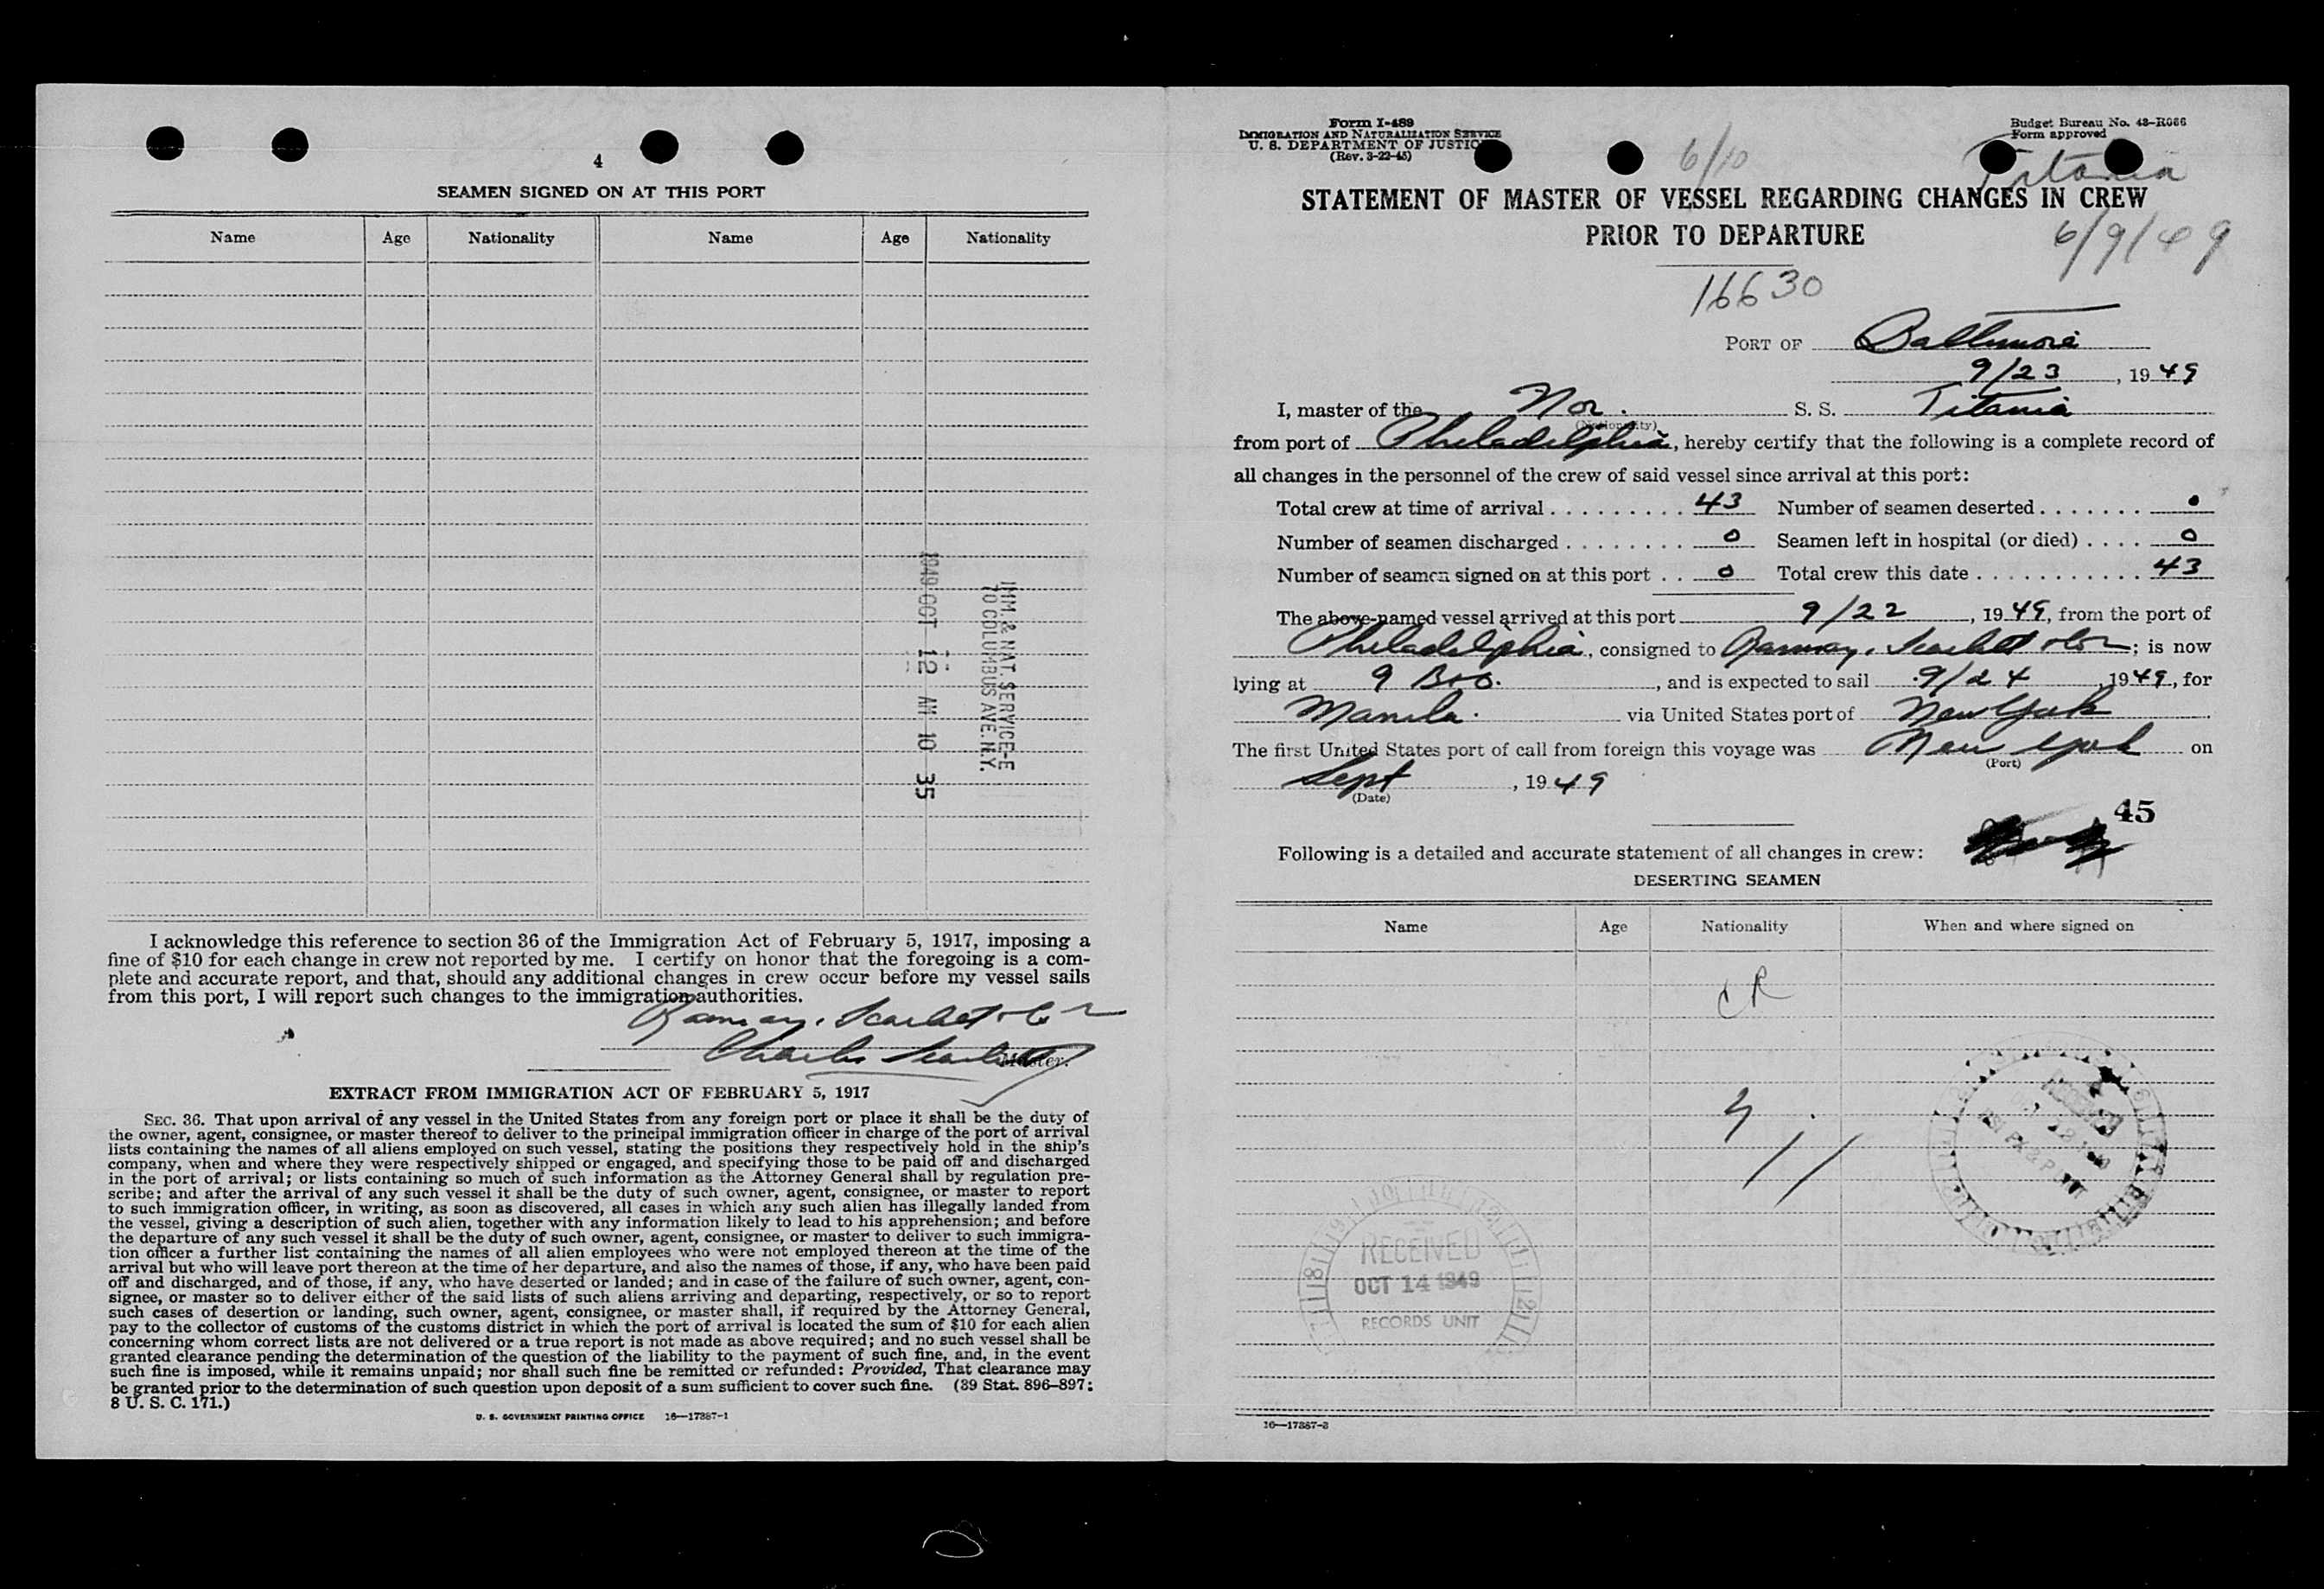 4
SEAMEN SIGNED ON AT THIS PORT
Name Age Nationality Name Age Nationality
1949 OCT 12 AM 10 35
IMM. & NAT. SERVICE-E
70 COLUMBUS AVE. N.Y.
I acknowledge this reference to section 36 of the Immigration Act of February 5, 1917, imposing a
fine of $10 for each change in crew not reported by me. I certify on honor that the foregoing is a com-
plete and accurate report, and that, should any additional changes in crew occur before my vessel sails
from this port, I will report such changes to the immigration authorities.
Ramsay, Scarlett & Co
Charles Scarlett
Master.
EXTRACT FROM IMMIGRATION ACT OF FEBRUARY 5, 1917
SEC. 36. That upon arrival of any vessel in the United States from any foreign port or place it shall be the duty of
the owner, agent, consignee, or master thereof to deliver to the principal immigration officer in charge of the port of arrival
lists containing the names of all aliens employed on such vessel, stating the positions they respectively hold in the ship's
company, when and where they were respectively shipped or engaged, and specifying those to be paid off and discharged
in the port of arrival; or lists containing so much of such information as the Attorney General shall by regulation pre-
scribe; and after the arrival of any such vessel it shall be the duty of such owner, agent, consignee, or master to report
to such immigration officer, in writing, as soon as discovered, all cases in which any such alien has illegally landed from
the vessel, giving a description of such alien, together with any information likely to lead to his apprehension; and before
the departure of any such vessel it shall be the duty of such owner, agent, consignee, or master to deliver to such immigra-
tion officer a further list containing the names of all alien employees who were not employed thereon at the time of the
arrival but who will leave port thereon at the time of her departure, and also the names of those, if any, who have been paid
off and discharged, and of those, if any, who have deserted or landed; and in case of the failure of such owner, agent, con-
signee, or master so to deliver either of the said lists of such aliens arriving and departing, respectively, or so to report
such cases of desertion or landing, such owner, agent, consignee, or master shall, if required by the Attorney General,
pay to the collector of customs of the customs district in which the port of arrival is located the sum of $10 for each alien
concerning whom correct lists are not delivered or a true report is not made as above required; and no such vessel shall be
granted clearance pending the determination of the question of the liability to the payment of such fine, and, in the event
such fine is imposed, while it remains unpaid; nor shall such fine be remitted or refunded: Provided, That clearance may
be granted prior to the determination of such question upon deposit of a sum sufficient to cover such fine. (39 Stat. 896-897;
8 U. S. C. 171.)
U. S. GOVERNMENT PRINTING OFFICE 16—17387-1
Form I-489
IMMIGRATION AND NATURALIZATION SERVICE
U. S. DEPARTMENT OF JUSTICE
(Rev. 3-22-45)
Budget Bureau No. 43-R066
Form approved
6/10
Titania
STATEMENT OF MASTER OF VESSEL REGARDING CHANGES IN CREW
PRIOR TO DEPARTURE
6/9/49
16630
PORT OF Baltimore
9/23, 1949
I, master of the Nor. S. S. Titania
(Nationality)
from port of Philadelphia, hereby certify that the following is a complete record of
all changes in the personnel of the crew of said vessel since arrival at this port:
Total crew at time of arrival 43 Number of seamen deserted 0
Number of seamen discharged 0 Seamen left in hospital (or died) 0
Number of seamen signed on at this port 0 Total crew this date 43
The above-named vessel arrived at this port 9/22, 1949, from the port of
Philadelphia, consigned to Ramsay, Scarlett & Co; is now
lying at 9 B&O., and is expected to sail 9/24, 1949, for
Manila. via United States port of New York
The first United States port of call from foreign this voyage was New York on
(Port)
Sept, 1949
(Date)
45
Following is a detailed and accurate statement of all changes in crew:
DESERTING SEAMEN
Name Age Nationality When and where signed on
CR
RECEIVED
OCT 14 1949
RECORDS UNIT
16—17387-3